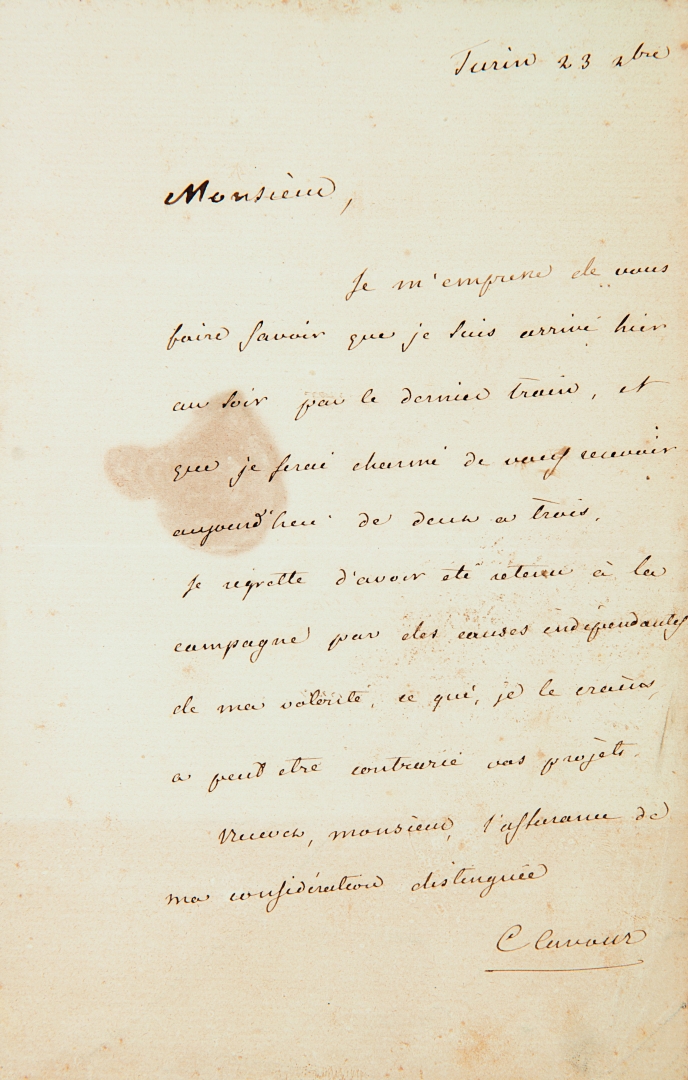 Turin 23 xbre
Monsieur,
Je m'empresse de vous
faire savoir que je suis arrivé hier
au soir par le dernier train, et
que je serai charmé de vous recevoir
aujourd'hui de deux a trois.
Je regrette d'avoir été retenu à la
campagne par des causes indépendantes
de ma volonté, ce qui, je le crains,
a peut etre contrarié vos projets.
Recevez, monsieur, l'assurance de
ma considération distinguée
C Cavour